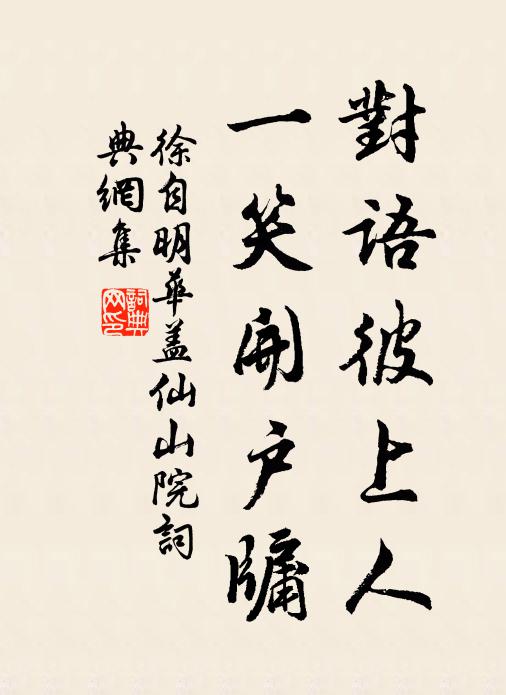 對語彼上人
一笑開戶牖
徐自明華蓋仙山院詞
典網集
詞典
網印